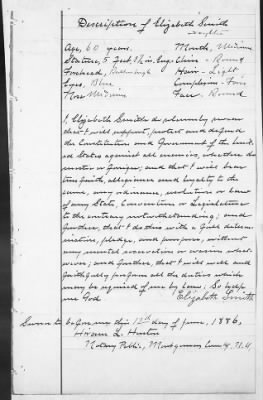 Description of Elizabeth Smith
Age, 60 years. Mouth, Medium
Stature, 5 feet, 3 in. Eng. Chin - Round
Forehead, Hair - Light
Eyes, Blue Complexion - Fair
Nose Medium Face - Round
I, Elizabeth Smith do solemnly swear
that I will support, protect and defend
the Constitution and Government of the Unit-
ed States against all enemies, whether do-
mestic or foreign; and that I will bear
true faith, allegiance and loyalty to the
same, any ordinance, resolution or law
of any State, Convention or Legislature
to the contrary notwithstanding; and
further, that I do this with a full deter-
mination, pledge, and purpose, without
any mental reservation or evasion what-
ever; and further, that I will well and
faithfully perform all the duties which
may be required of me by law; So help
me God
Elizabeth Smith
Sworn to before me this 12th day of June, 1886,
Hiram L. Huston
Notary Public, Montgomery County, N.Y.